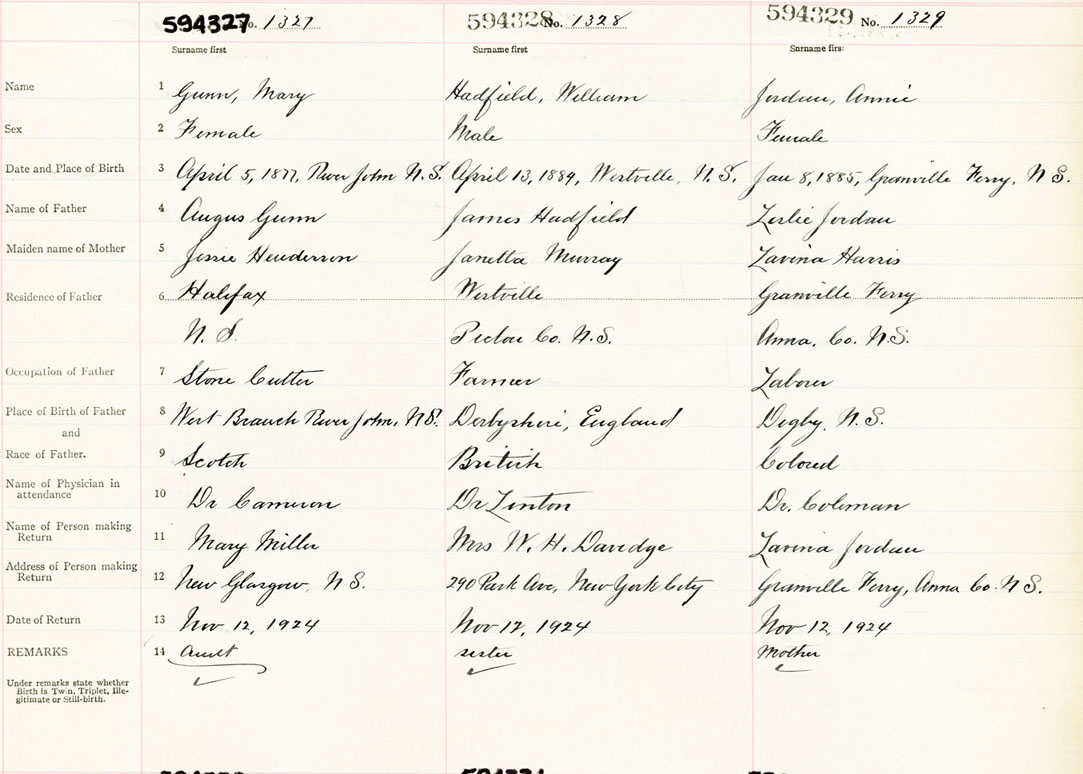 594327 No. 1327 594328 No. 1328 594329 No. 1329
Surname first Surname first Surname first
Name 1 Gunn, Mary Hadfield, William Jordan, Annie
Sex 2 Female Male Female
Date and Place of Birth 3 April 5, 1877, River John N.S. April 13, 1884, Westville, N.S. Jan 8, 1885, Granville Ferry, N S.
Name of Father 4 Angus Gunn James Hadfield Leslie Jordan
Maiden name of Mother 5 Jessie Henderson Janetta Murray Lavina Harris
Residence of Father 6 Halifax Westville Granville Ferry
N. S. Pictou Co. N.S. Anna. Co. N.S.
Occupation of Father 7 Stone Cutter Farmer Laborer
Place of Birth of Father 8 West Branch River John, N.S. Derbyshire, England Digby, N.S.
and
Race of Father. 9 Scotch British Colored
Name of Physician in
attendance 10 Dr Cameron Dr Linton Dr. Coleman
Name of Person making
Return 11 Mary Miller Mrs W. H. Davidge Lavina Jordan
Address of Person making
Return 12 New Glasgow, N S. 290 Park Ave, New York City Granville Ferry, Anna Co. N S.
Date of Return 13 Nov 12, 1924 Nov 12, 1924 Nov 12, 1924
REMARKS 14 Aunt sister Mother
Under remarks state whether
Birth is Twin, Triplet, Ille-
gitimate or Still-birth.